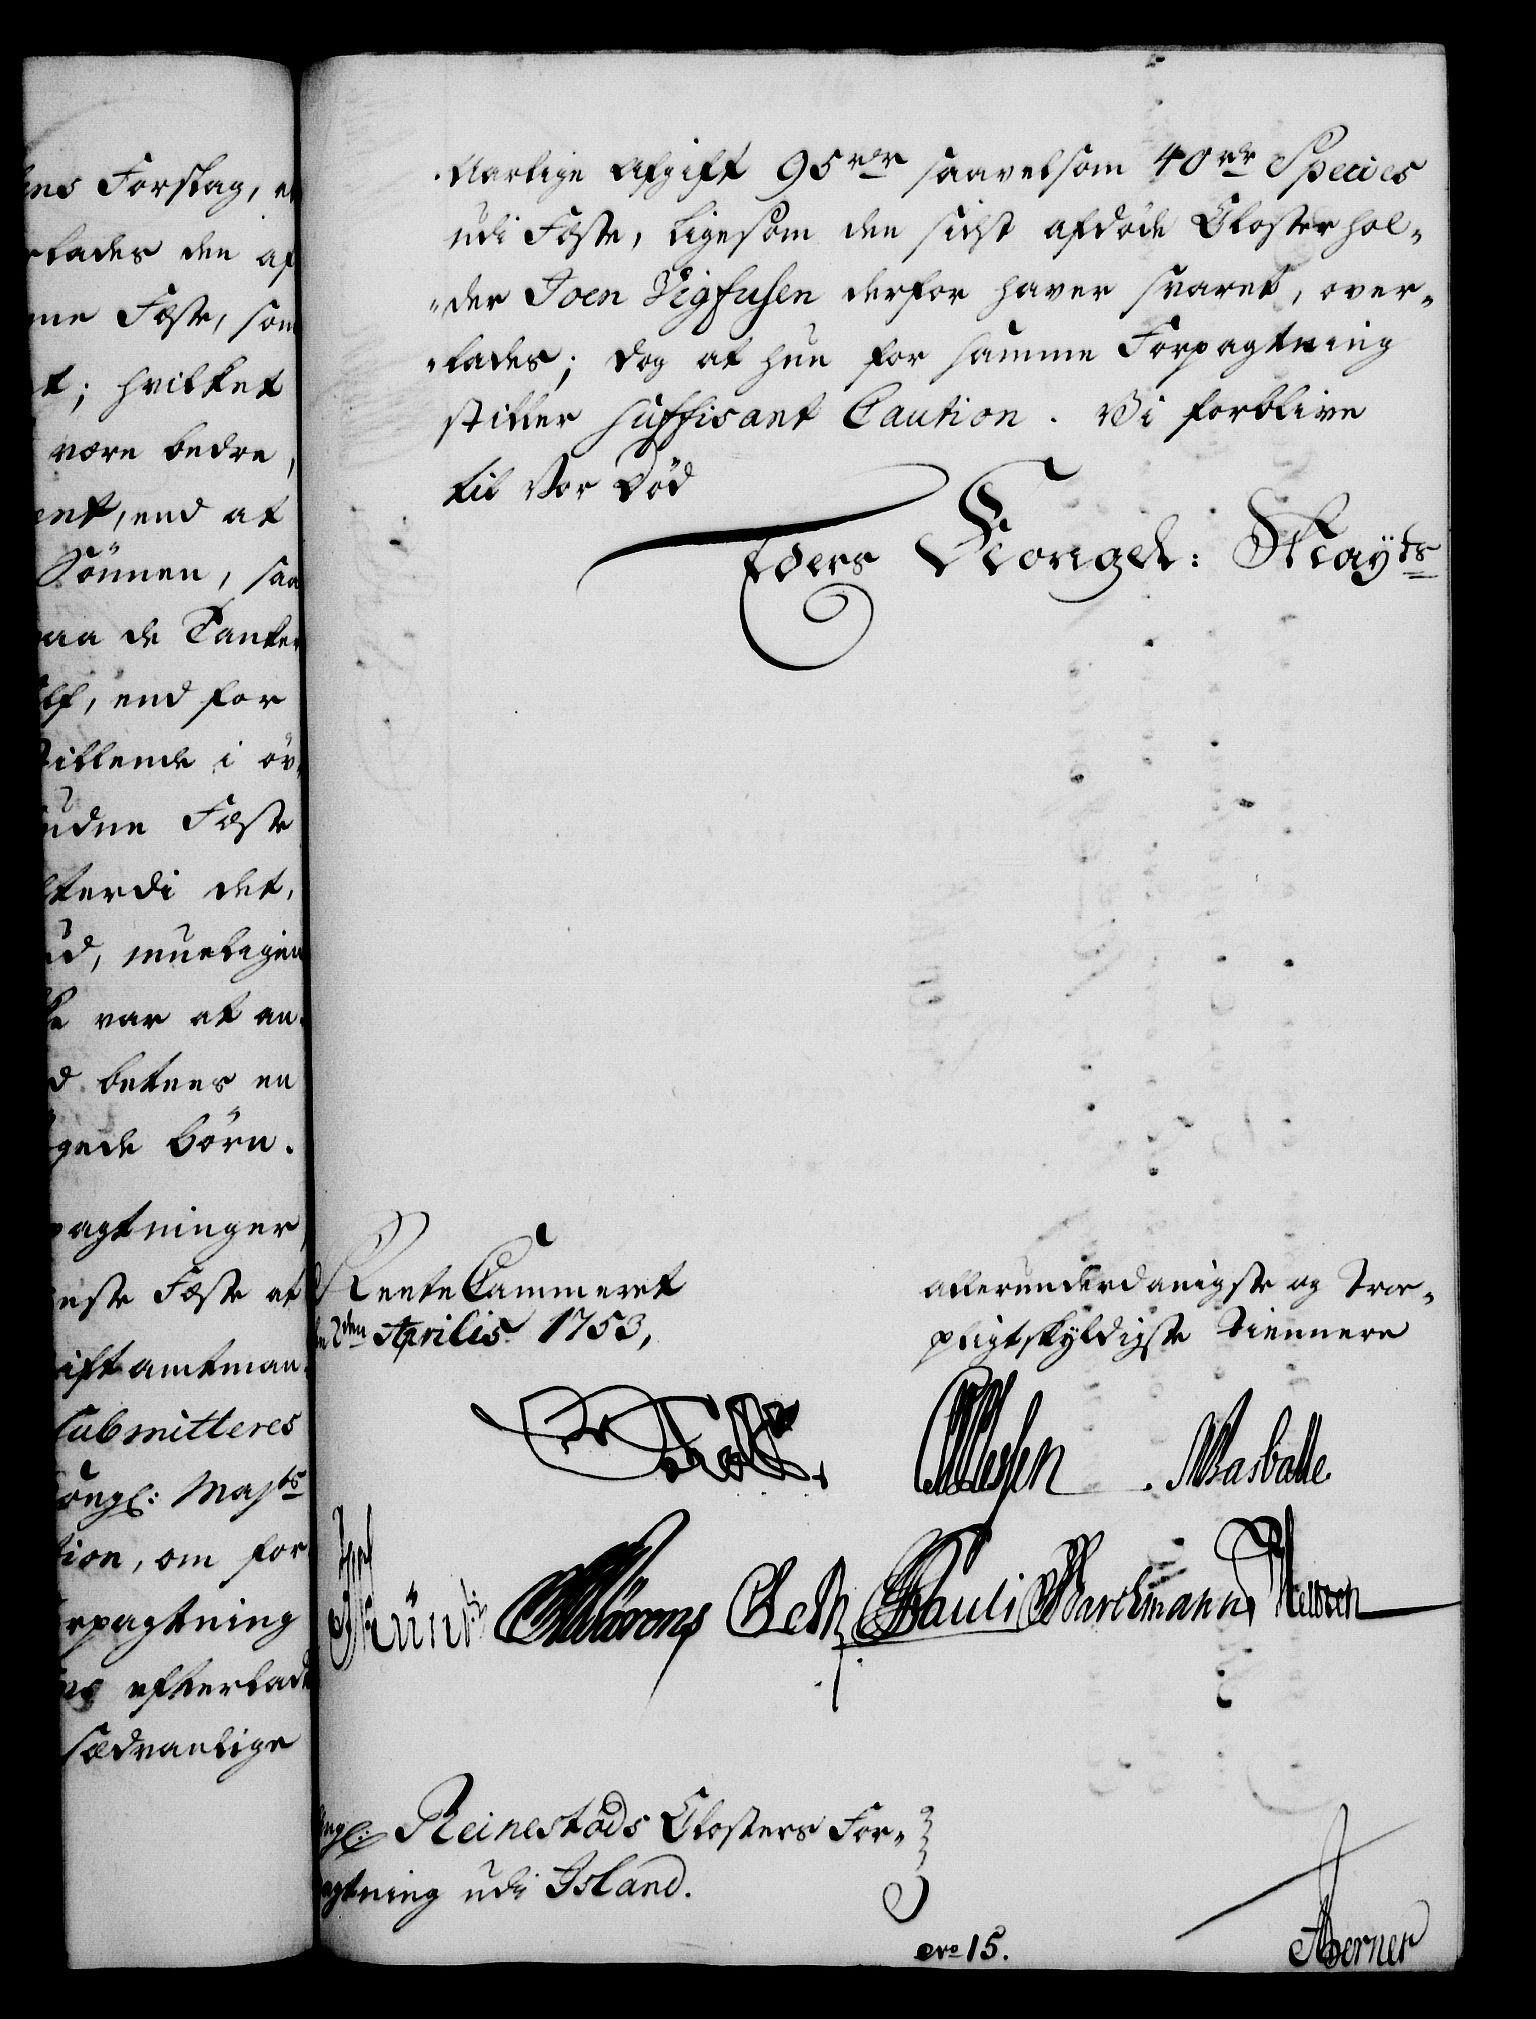 ens Forslag, at
rlades den af
me Fæste, som
t; hvilket
være bedre,
ent, end at
Sönnen, saa
paa de Tanker
elf, end for
stillende i öv
budne Fæste
efterdi det,
ud, mueligen
ke var at an-
d betnes en
gede Börn.
pagtninger,
este Fæste at
Stiftamtman-
submitteres
Kongl: Majts
tion, om for
rpagtning
ns efterladte
sædvanlige
Aarlige Afgift 95 rdr saavelsom 40 rdr Species
udi Fæste, ligesom den sidst afdöde Closterhol-
-der Joen Vigfusen derfor haver svaret, over-
-lades; dog at hun for samme Forpagtning
stiller suffisant Caution. Vi forblive
til Vor Död
Eders Kongel: Mayts
Rente Cammeret
den 2den Aprilis 1753,
allerunderdanigste og Troe-
pligtskyldigste Tiennere
Holt.
Wessen
Masballe
Künt
Pauli
Barchmann
Kongl: Reinestöds Closters For-
pagtning udi Island.
No 15.
Berner